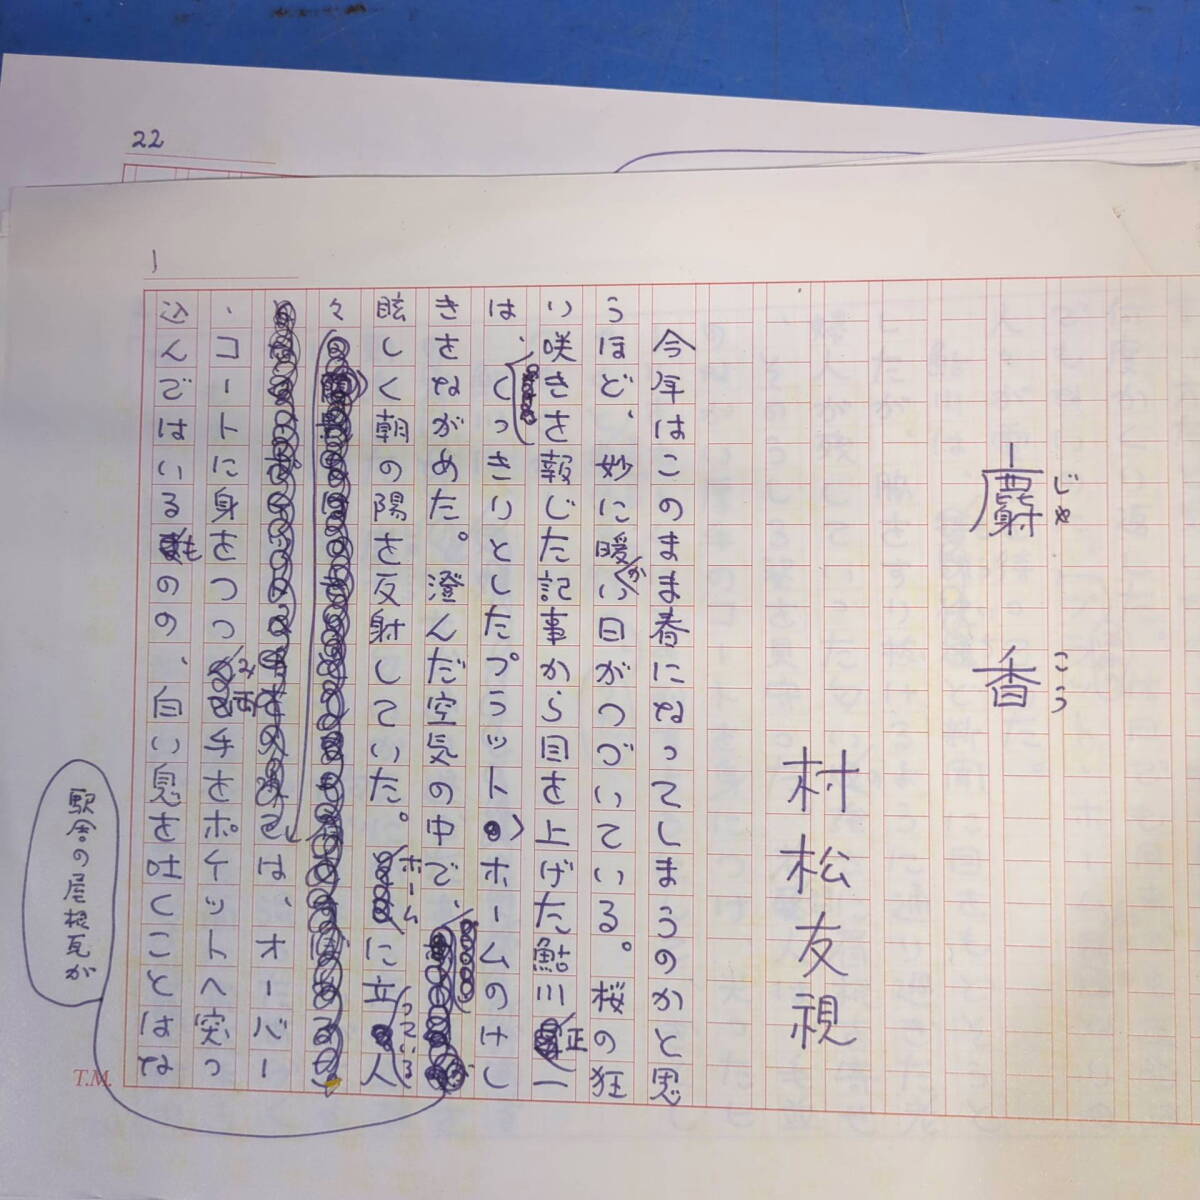 22
1
麝香
じゃこう
村松友視
今年はこのまま春になってしまうのかと思
うほど、妙に暖かい日がつづいている。桜の狂
い咲きを報じた記事から目を上げた鮎川正一
は、くっきりとしたプラットホームのけし
きをながめた。澄んだ空気の中で、
駅舎の屋根瓦が
眩しく朝の陽を反射していた。ホームに立っている人
々
は、オーバー
、コートに身をつつみ両手をポケットへ突っ
込んではいるものの、白い息を吐くことはな
T.M.